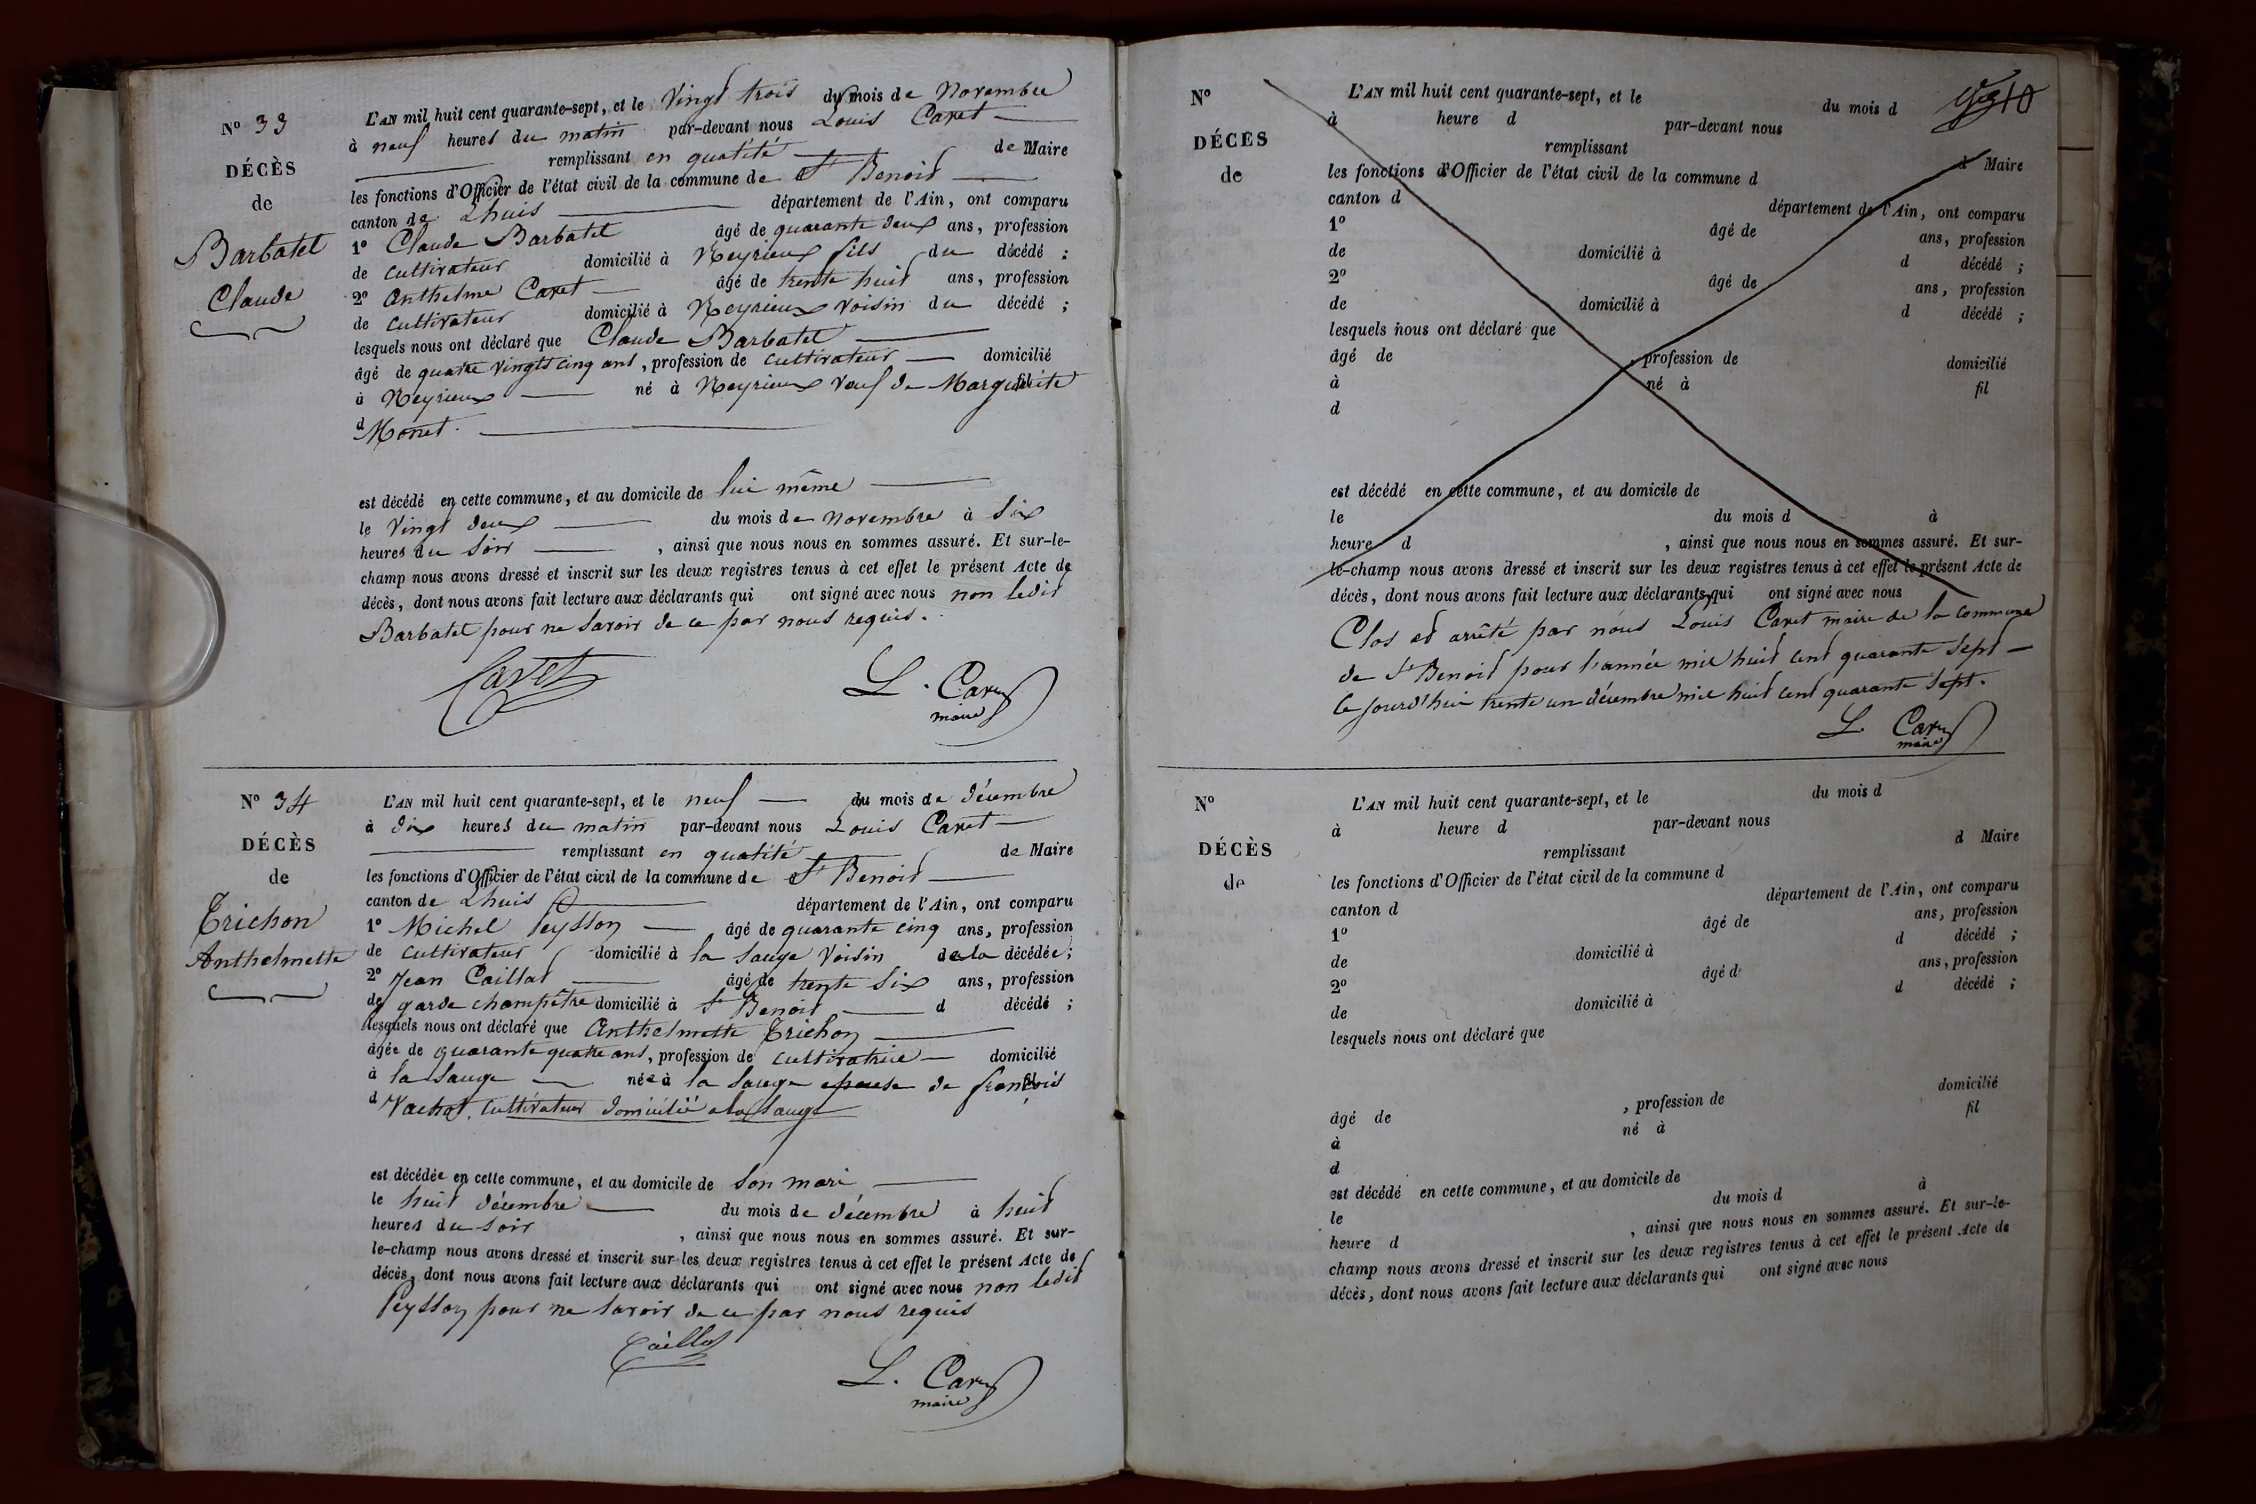 N° 33
DÉCÈS
de
Barbatel
Claude
L'AN mil huit cent quarante-sept, et le Vingt trois du mois de Novembre
à neuf heures du matin par-devant nous Louis Caret
remplissant en qualité de Maire
les fonctions d'Officier de l'état civil de la commune de St Benoit
canton de Lhuis département de l'Ain, ont comparu
1° Claude Barbatel âgé de quarante deux ans, profession
de cultivateur domicilié à Neyrieux fils du décédé ;
2° Anthelme Caret âgé de trente huit ans, profession
de cultivateur domicilié à Neyrieux voisin du décédé ;
lesquels nous ont déclaré que Claude Barbatel
âgé de quatre vingts cinq ans, profession de cultivateur domicilié
à Neyrieux né à Neyrieux veuf de Marguerite fil
d Monet.
est décédé en cette commune, et au domicile de lui même
le Vingt deux du mois de novembre à Six
heures du Soir , ainsi que nous nous en sommes assuré. Et sur-le-
champ nous avons dressé et inscrit sur les deux registres tenus à cet effet le présent Acte de
décès, dont nous avons fait lecture aux déclarants qui ont signé avec nous non ledit
Barbatel pour ne Savoir de ce par nous requis.
Caret
L. Caret
maire
N° 34
DÉCÈS
de
Trichon
Anthelmette
L'AN mil huit cent quarante-sept, et le neuf du mois de décembre
à dix heures du matin par-devant nous Louis Caret
remplissant en qualité de Maire
les fonctions d'Officier de l'état civil de la commune de St Benoit
canton de Lhuis département de l'Ain, ont comparu
1° Michel Peysson âgé de quarante cinq ans, profession
de cultivateur domicilié à la Sauge Voisin de la décédée ;
2° Jean Caillat âgé de trente Six ans, profession
de garde champêtre domicilié à St Benoit d décédé ;
lesquels nous ont déclaré que Anthelmette Trichon
âgée de quarante quatre ans, profession de cultivatrice domicilié
à la Sauge née à la Sauge epouse de françois fil
d Vachot cultivateur domicilié a la Sauge
est décédée en cette commune, et au domicile de Son mari
le huit décembre du mois de décembre à huit
heures du Soir , ainsi que nous nous en sommes assuré. Et sur-
le-champ nous avons dressé et inscrit sur les deux registres tenus à cet effet le présent Acte de
décès, dont nous avons fait lecture aux déclarants qui ont signé avec nous non ledit
Peysson pour ne Savoir de ce par nous requis
Caillat
L. Caret
maire
N°
DÉCÈS
de
L'AN mil huit cent quarante-sept, et le du mois d
à heure d par-devant nous
remplissant d Maire
les fonctions d'Officier de l'état civil de la commune d
canton d département de l'Ain, ont comparu
1° âgé de ans, profession
de domicilié à d décédé ;
2° âgé de ans, profession
de domicilié à d décédé ;
lesquels nous ont déclaré que
âgé de , profession de domicilié
à né à fil
d
est décédé en cette commune, et au domicile de
le du mois d à
heure d , ainsi que nous nous en sommes assuré. Et sur-
le-champ nous avons dressé et inscrit sur les deux registres tenus à cet effet le présent Acte de
décès, dont nous avons fait lecture aux déclarants qui ont signé avec nous
Clos et arrêté par nous Louis Caret maire de la commune
de St Benoit pour l'année mil huit cent quarante Sept
Ce jourd'hui trente un décembre mil huit cent quarante Sept.
L. Caret
maire
N°
DÉCÈS
de
L'AN mil huit cent quarante-sept, et le du mois d
à heure d par-devant nous
remplissant d Maire
les fonctions d'Officier de l'état civil de la commune d
canton d département de l'Ain, ont comparu
1° âgé de ans, profession
de domicilié à d décédé ;
2° âgé d ans, profession
de domicilié à d décédé ;
lesquels nous ont déclaré que
âgé de , profession de domicilié
à né à fil
d
est décédé en cette commune, et au domicile de
le du mois d à
heure d , ainsi que nous nous en sommes assuré. Et sur-le-
champ nous avons dressé et inscrit sur les deux registres tenus à cet effet le présent Acte de
décès, dont nous avons fait lecture aux déclarants qui ont signé avec nous